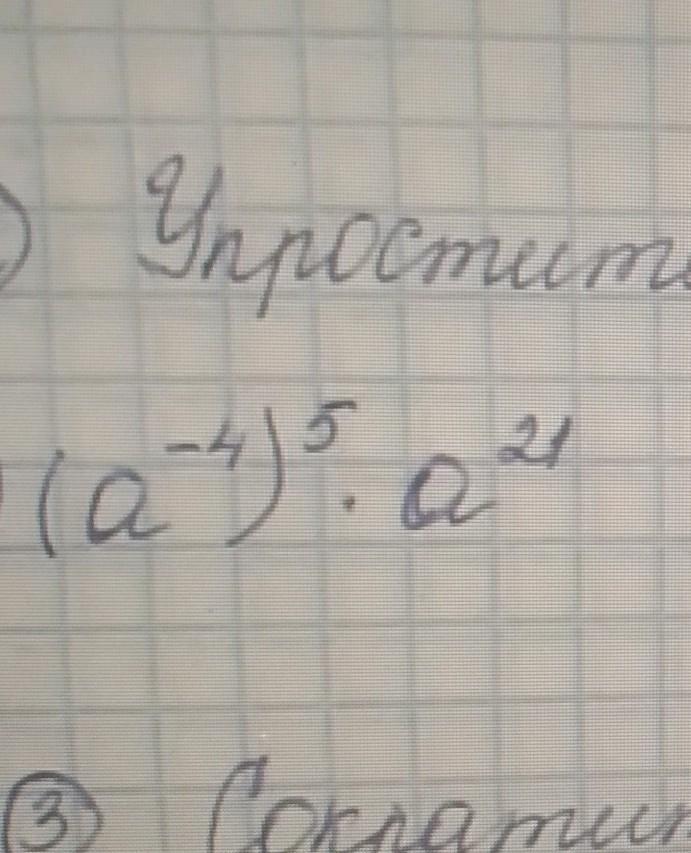 ) Упростит
(a⁻⁴)⁵ · a²¹
③ Сократит